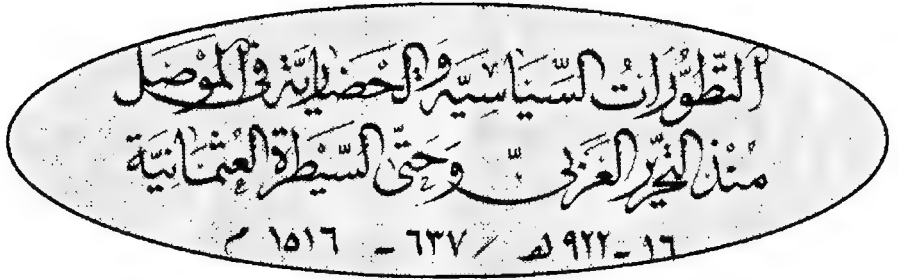 التَّطَوُّرَاتُ السِّيَاسِيَّة وَالحَضَارِيَّة فِي المَوْصِل
مُنْذُ التَّحْرِير العَرَبِيّ وَحَتَّى السَّيْطَرَة العُثْمَانِيَّة
١٦ – ٩٢٢ هـ / ٦٣٧ – ١٥١٦ م